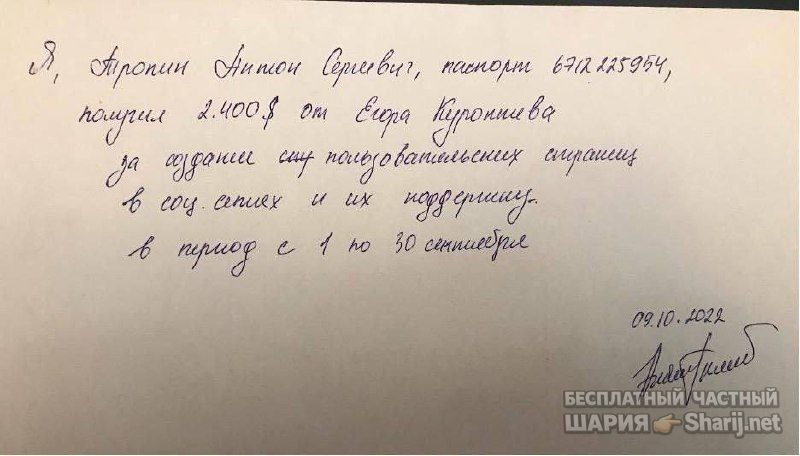 Я, Тропин Антон Сергеевич, паспорт 6712 225954,
получил 2.400$ от Егора Куроптева
за создание пользовательских страниц
в соц. сетях и их поддержку.
в период с 1 по 30 сентября
09.10.2022
БЕСПЛАТНЫЙ ЧАСТНЫЙ
ШАРИЯ 👉 Sharij.net